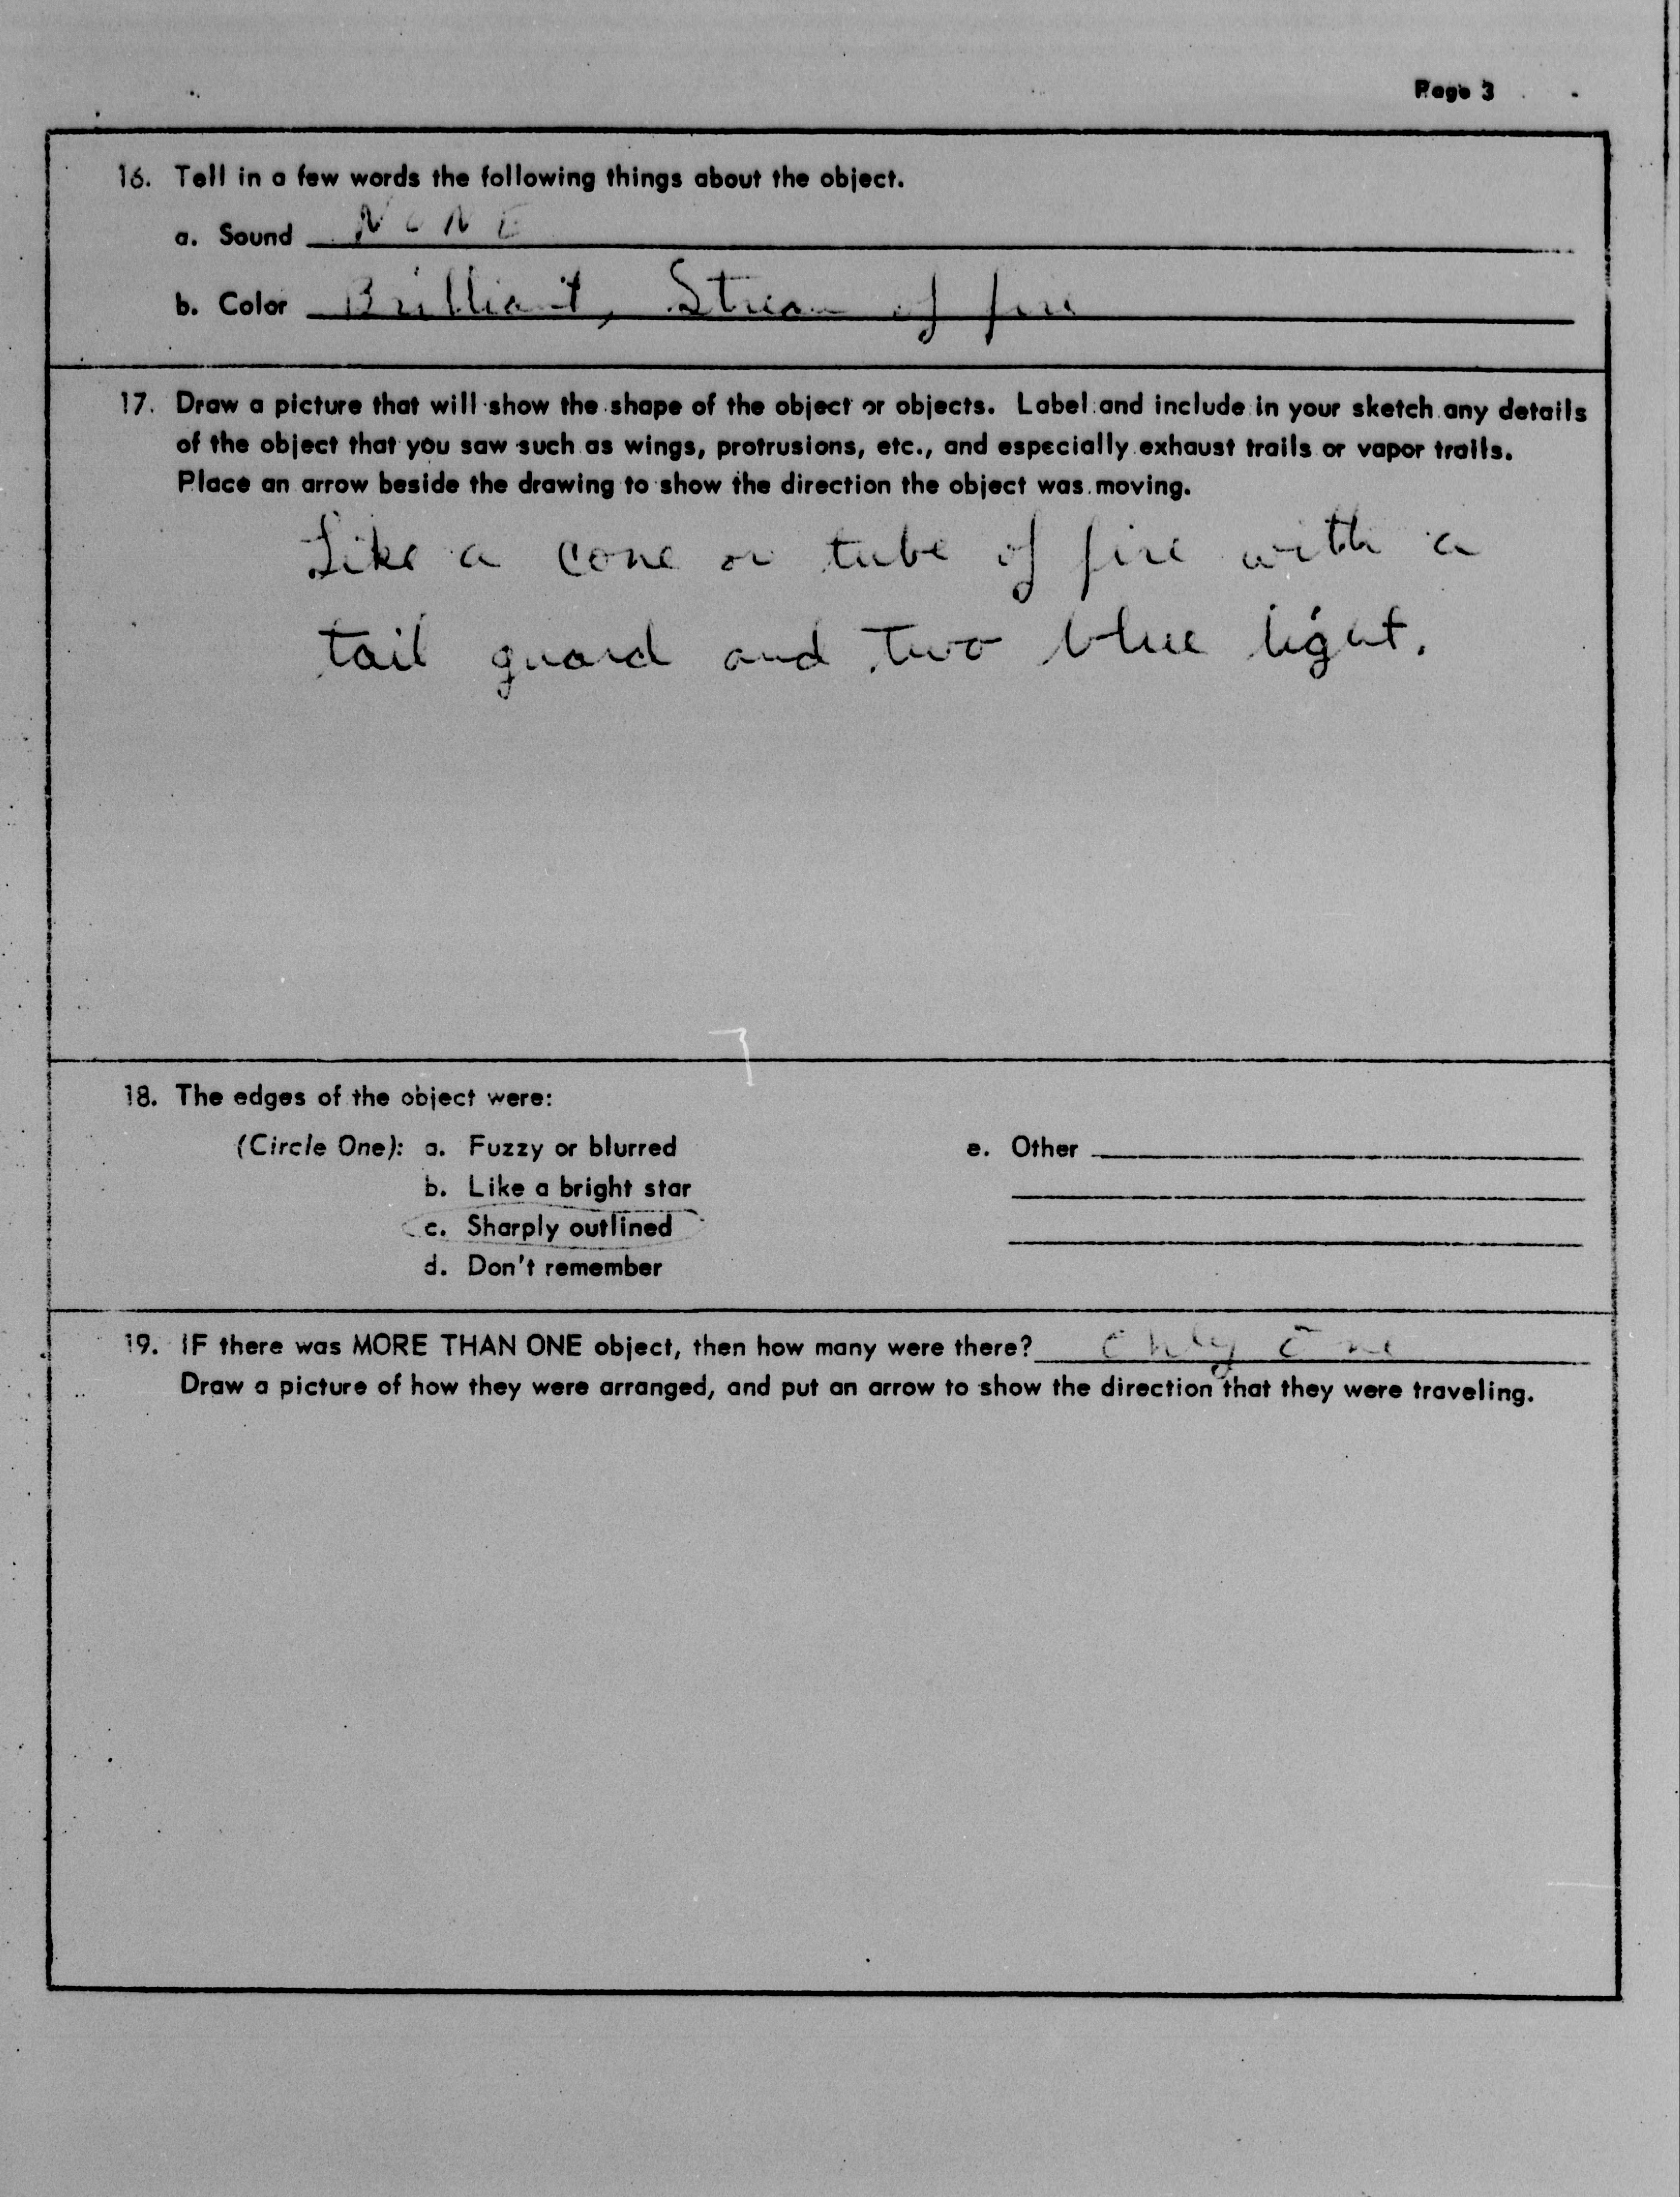 Page 3
16. Tell in a few words the following things about the object.
a. Sound NONE
b. Color Brilliant, Stream of fire
17. Draw a picture that will show the shape of the object or objects. Label and include in your sketch any details
of the object that you saw such as wings, protrusions, etc., and especially exhaust trails or vapor trails.
Place an arrow beside the drawing to show the direction the object was moving.
Like a cone or tube of fire with a
tail guard and two blue light.
18. The edges of the object were:
(Circle One): a. Fuzzy or blurred e. Other
b. Like a bright star
c. Sharply outlined
d. Don't remember
19. IF there was MORE THAN ONE object, then how many were there? only one
Draw a picture of how they were arranged, and put an arrow to show the direction that they were traveling.